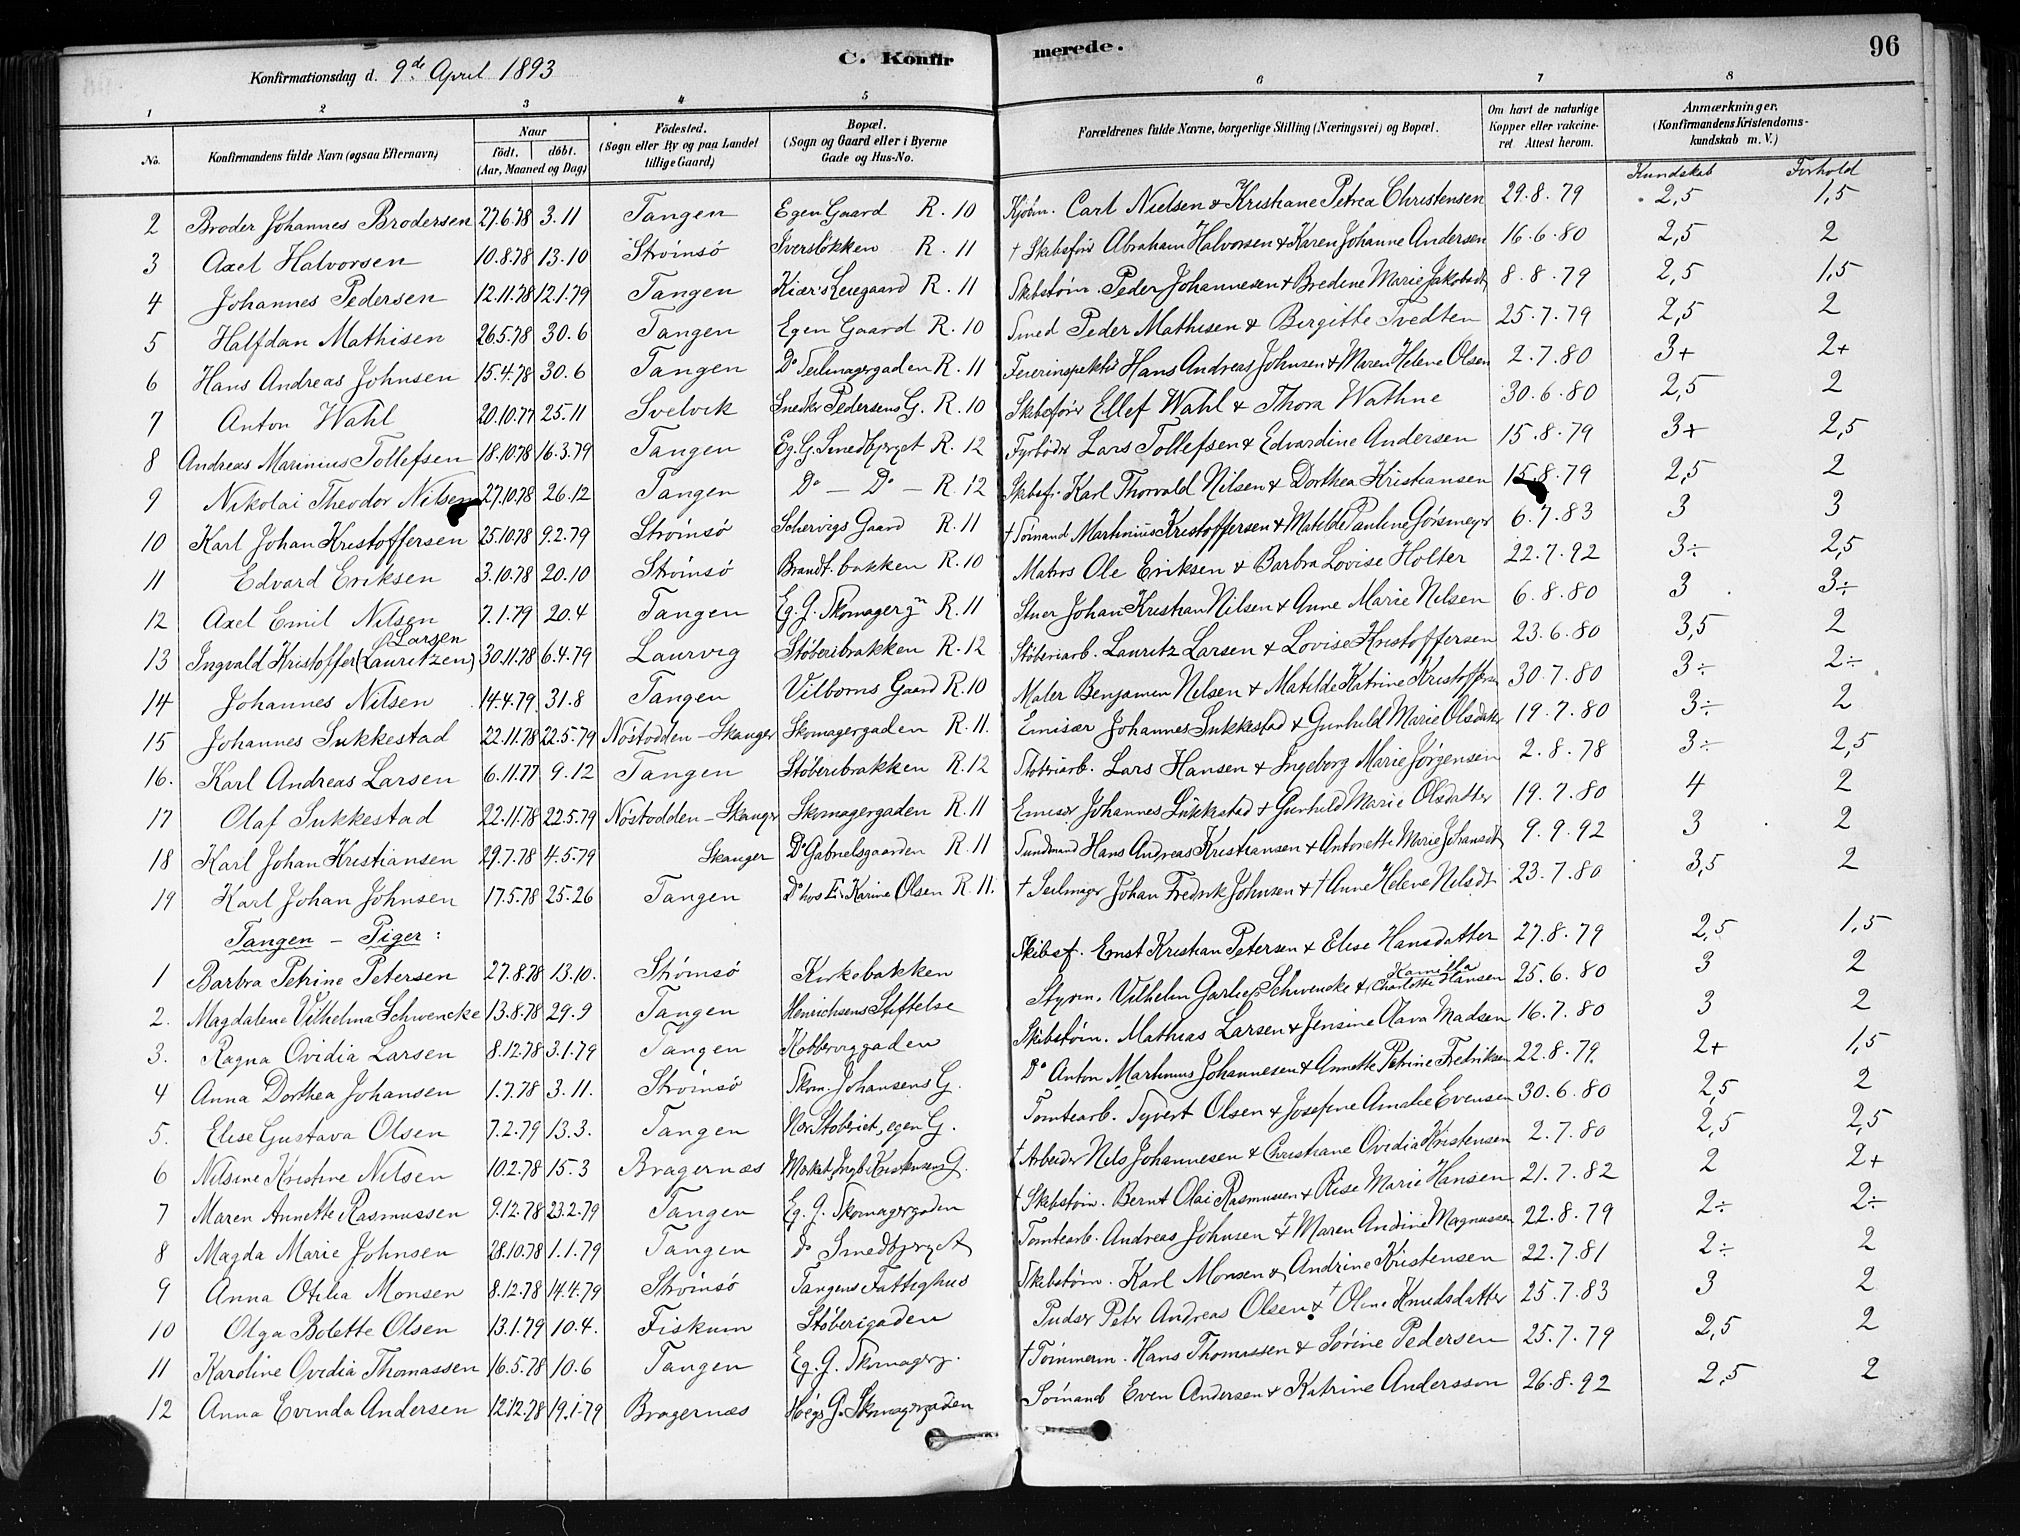 Konfirmationsdag d. 9de April 1893 C. Konfirmerede. 96
1 2 3 4 5 6 7 8
No. Konfirmandens fulde Navn (ogsaa Efternavn) Naar födt. döbt. (Aar, Maaned og Dag) Födested. (Sogn eller By og paa Landet tillige Gaard) Bopæl. (Sogn og Gaard eller i Byerne Gade og Hus-No.) Forældrenes fulde Navne, borgerlige Stilling (Næringsvei) og Bopæl. Om havt de naturlige Kopper eller vakcineret Attest herom. Anmærkninger. (Konfirmandens Kristendomskundskab m. V.)
Kundskab Forhold
2 Broder Johannes Brodersen 27.6.78 3.11 Tangen Egen Gaard R. 10 Kjøbm. Carl Nielsen & Kristiane Petrea Christensen 29.8.79 2,5 1,5
3 Axel Halvorsen 10.8.78 13.10 Strömsö Iversløkken R. 11 † Skibsfører Abraham Halvorsen & Karen Johanne Andersen 16.6.80 2,5 2
4 Johannes Pedersen 12.11.78 12.1.79 Tangen Kiær's Leiegaard R. 11 Skibstøm. Peder Johannesen & Bredine Marie Jakobsdt 8.8.79 2,5 1,5
5 Halfdan Mathisen 26.5.78 30.6 Tangen Egen Gaard R. 10 Smed Peder Mathisen & Birgitte Tvedten 25.7.79 2,5 2
6 Hans Andreas Johnsen 15.4.78 30.6 Tangen Do Seilmagergaden R. 11 Feierinspektør Hans Andreas Johnsen & Maren Helene Olsen 2.7.80 3+ 2+
7 Anton Wahl 20.10.77 25.11 Svelvik Snedkr Pedersens G. R. 10 Skibsfører Ellef Wahl & Thora Wathne 30.6.80 2,5 2
8 Andreas Marinius Tollefsen 18.10.78 16.3.79 Tangen Eg. G. Smedbjerget R. 12 Fyrbøder Lars Tollefsen & Edvardine Andersen 15.8.79 3+ 2,5
9 Nikolai Theodor Nilsen 27.10.78 26.12 Tangen Do — Do — R. 12 Skibsf. Karl Thorvald Nilsen & Dorthea Kristiansen 15.8.79 2,5 2
10 Karl Johan Kristoffersen 25.10.78 9.2.79 Strömsö Schervigs Gaard R. 11 † Sömand Martinius Kristoffersen & Matilde Pauline Görsmeyer 6.7.83 3 3
11 Edvard Eriksen 3.10.78 20.10 Strömsö Brandt.bakken R. 10 Matros Ole Eriksen & Barbra Lovise Holter 22.7.92 3÷ 2,5
12 Axel Emil Nilsen 7.1.79 20.4 Tangen Eg. G. Skomagergn R. 11 Stuer Johan Kristian Nilsen & Anne Marie Nilsen 6.8.80 3 3÷
13 Ingvald Kristoffer (Lauritzen) Larsen 30.11.78 6.4.79 Laurvig Støberibrakken R. 12 Støberiarb. Lauritz Larsen & Lovise Kristoffersen 23.6.80 3,5 2
14 Johannes Nilsen 14.4.79 31.8 Tangen Vilborns Gaard R. 10 Maler Benjamin Nilsen & Matilde Katrine Kristoffersen 30.7.80 3÷ 2÷
15 Johannes Sukkestad 22.11.78 22.5.79 Nöstodden - Skauger Skomagergaden R. 11. Emisær Johannes Sukkestad & Gunhild Marie Olsdatter 19.7.80 3÷ 2
16. Karl Andreas Larsen 6.11.77 9.12 Tangen Støberibrakken R. 12 Støberiarb. Lars Hansen & Ingeborg Marie Jørgensen 2.8.78 3÷ 2,5
17 Olaf Sukkestad 22.11.78 22.5.79 Nöstodden - Skauger Skomagergaden R. 11 Emisær Johannes Sukkestad & Gunhild Marie Olsdatter 19.7.80 4 2
18 Karl Johan Kristiansen 29.7.78 4.5.79 Skauger Do Gabrielsgaarden R. 11 Sundmand Hans Andreas Kristiansen & Antonette Marie Johansdt 9.9.92 3 2
19 Karl Johan Johnsen 17.5.78 25.26 Tangen Do hos E. Karine Olsen R. 11. † Seilmager Johan Fredrik Johnsen & † Anne Helene Nilsdt 23.7.80 3,5 2
Tangen - Piger:
1 Barbra Petrine Petersen 27.8.78 13.10. Strømsö Kirkebakken Skibsf. Ernst Kristian Petersen & Elise Hansdatter 27.8.79 2,5 1,5
2. Magdalene Vilhelma Schwencke 13.8.78 29.9 Tangen Henrichsens Stiftelse Styrm. Vilhelm Garlieb Schwencke & Kamilla Charlotte Hansen 25.6.80 3 2
3. Ragna Ovidia Larsen 8.12.78 3.1.79 Tangen Kobberviggaden Skibstøm. Mathias Larsen & Jensine Olava Madsen 16.7.80 3 2
4 Anna Dorthea Johansen 1.7.78 3.11. Strömsö Skom. Johansens G. Do Anton Martinius Johannesen & Annette Petrine Fredriksen 22.8.79. 2+ 1,5
5. Elise Gustava Olsen 7.2.79 13.3. Tangen Nær Støberiet, egen G. Tomtearb. Syvert Olsen & Josefine Amalie Evensen 30.6.80 2,5 2
6 Nilsine Kristine Nilsen 10.2.78 15.3 Bragernæs Kristensens G. † Arbeider Nils Johannesen & Christiane Ovidia Kristensen 2.7.80 2,5 2,5
7 Maren Annette Rasmussen 9.12.78 23.2.79 Tangen Eg. G. Skomagergaden † Skibstøm. Bernt Olai Rasmussen & Rise Marie Hansen 21.7.82 2 2+
8 Magda Marie Johnsen 28.10.78 1.1.79 Tangen do Smedbjerget Tomtearb. Andreas Johnsen & † Maren Andine Magnussen 22.8.79 2÷ 2÷
9 Anna Otilia Monsen 8.12.78 14.4.79 Strömsö Tangens Fattighus Skibstøm. Karl Monsen & Andrine Kristensen 22.7.81 2÷ 2
10 Olga Bolette Olsen 13.1.79 10.4. Fiskum Støberigaden Pudser Peter Andreas Olsen & † Oline Knudsdatter 25.7.83 3 2
11 Karoline Ovidia Thomassen 16.5.78 10.6 Tangen Eg. G. Skomagerg. † Tømmerm. Hans Thomassen & Sörine Pedersen 25.7.79 2,5 2
12 Anna Evinda Andersen 12.12.78 19.1.79 Bragernæs Høegs G. Skomagergaden Sömand Even Andersen & Katrine Andersson 26.8.92 2,5 2